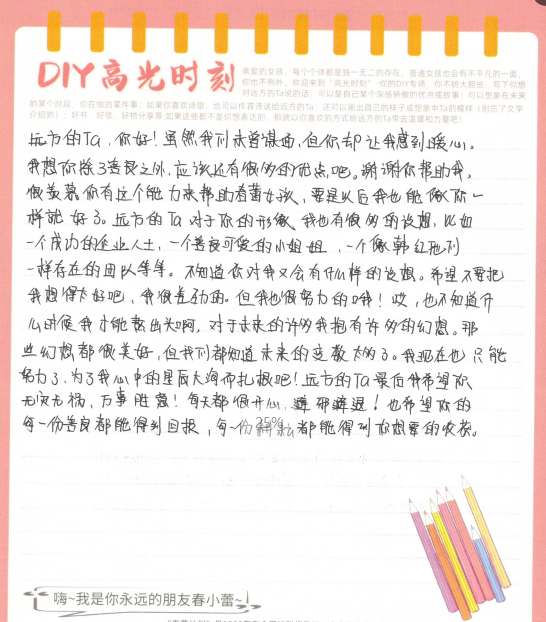 DIY高光时刻
亲爱的女孩，每个个体都是独一无二的存在，普通女孩也会有不平凡的一面，
你也不例外。欢迎来到“高光时刻”你的DIY专场，你不妨大胆些，写下你想
对远方的Ta说的话，可以是自己某个深感骄傲的优点或故事；可以想象在未来
的某个时段，你在做的某件事；如果你喜欢诗歌，也可以作首诗送给远方的Ta；还可以画出自己的样子或想象中Ta的模样（别忘了文字
介绍哟）；好书、好歌、好物分享等.如果这些都不是你想表达的，那就以你喜欢的方式给远方的Ta带去温暖和力量吧！
远方的Ta，你好！虽然我们未曾谋面，但你却让我感到暖心。
我想你除了善良之外，应该还有很多的优点吧。谢谢你帮助我，
很羡慕你有这个能力来帮助春蕾女孩，要是以后我也能像你一
样就好了。远方的Ta对于你的形像我也有很多的设想，比如
一个成功的企业人士，一个善良可爱的小姐姐，一个像韩红他们
一样存在的团队等等。不知道你对我又会有什么样的设想。希望不要把
我想得太好吧，我很差劲的。但我也很努力的哦！哎，也不知道什
么时候我才能教出头啊，对于未来的许多我抱有许多的幻想。那
些幻想都很美好，但我们都知道未来的变数太多了。我现在也只能
努力了，为了我心中的星辰大海而扎根吧！远方的Ta最后我希望你
无灾无祸，万事胜意！每天都很开心，避邪避退！也希望你的
每一份善良都能得到回报，每一份都能得到你想要的收获。
25%
嗨~我是你永远的朋友春小蕾~